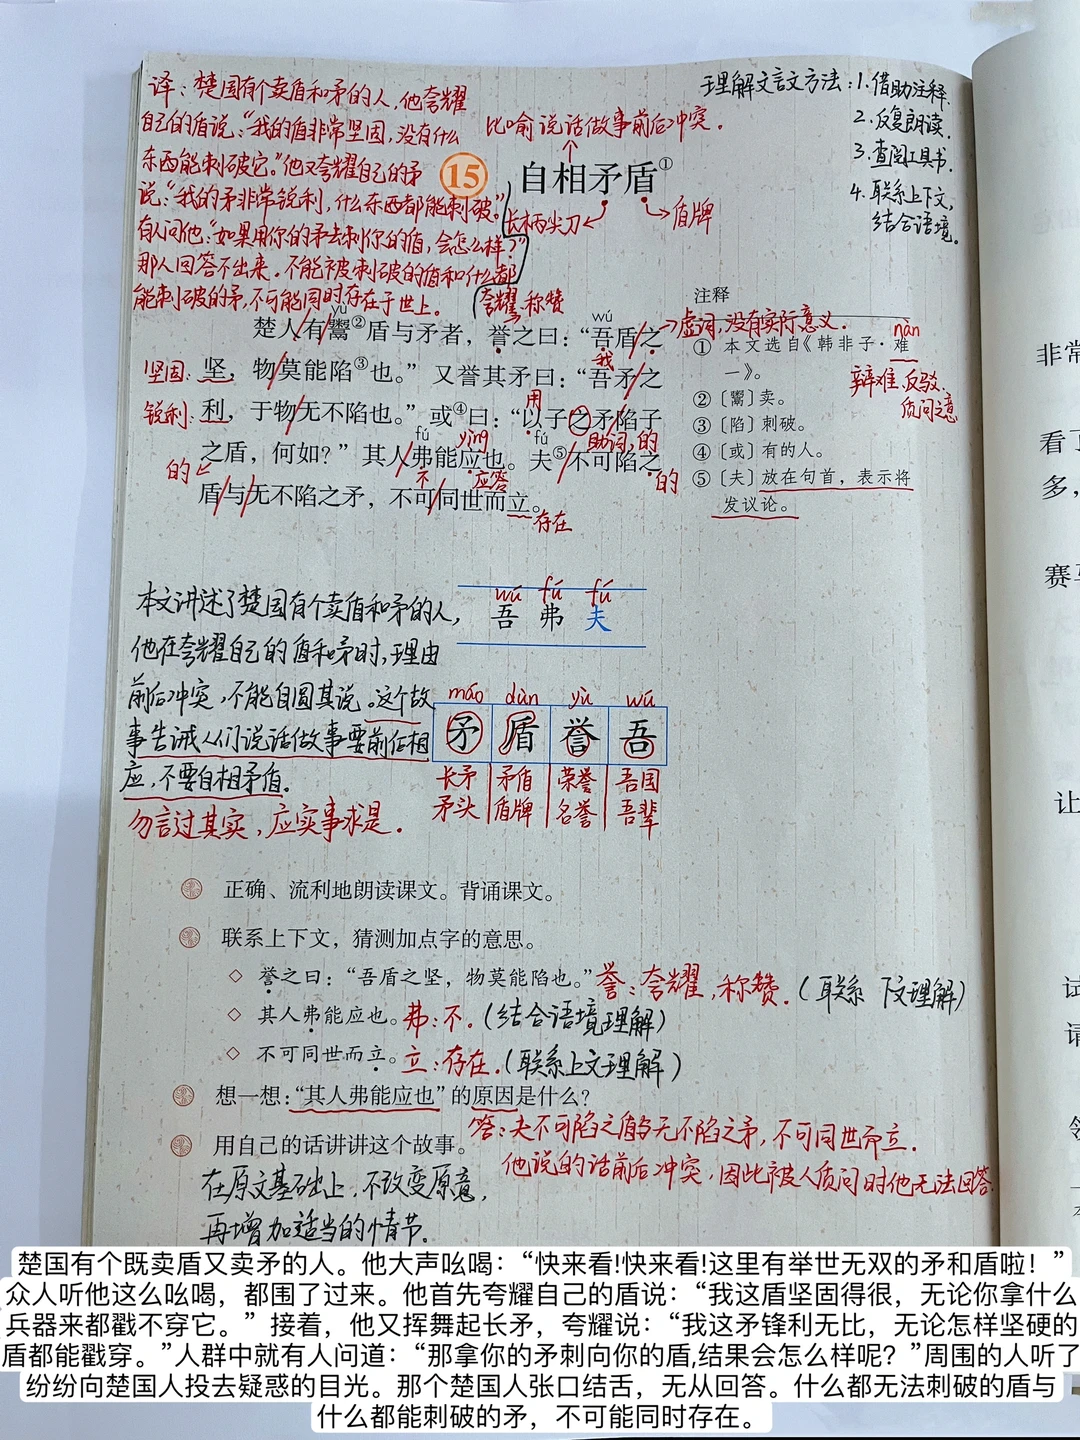 译：楚国有个卖盾和矛的人，他夸耀
自己的盾说："我的盾非常坚固，没有什么
东西能刺破它。"他又夸耀自己的矛
说："我的矛非常锐利，什么东西都能刺破。"
有人问他："如果用你的矛去刺你的盾，会怎么样？"
那人回答不出来。不能被刺破的盾和什么都
能刺破的矛，不可能同时存在于世上。
比喻说话做事前后冲突。
15 自相矛盾①
长柄尖刀
盾牌
理解文言文方法：1.借助注释.
2.反复朗读.
3.查阅工具书.
4.联系上下文，
结合语境。
夸耀，称赞
yù wú
楚人/有鬻②盾与矛者，誉之曰："吾盾/之
虚词，没有实际意义.
我
坚固：坚，物/莫能陷③也。"又誉其矛曰："吾矛/之
用
锐利：利，于物/无不陷也。"或④曰："以子之矛/陷子
助词，的
fú yìng fú
之盾，何如？"其人/弗能应也。夫⑤/不可陷之
的
不 应答
的
盾/与/无不陷之矛，不可/同世而立。
存在
注释
nàn
① 本文选自《韩非子·难
一》。
辩难、反驳、
质问之意
② 〔鬻〕卖。
③ 〔陷〕刺破。
④ 〔或〕有的人。
⑤ 〔夫〕放在句首，表示将
发议论。
本文讲述了楚国有个卖盾和矛的人，
他在夸耀自己的盾和矛时，理由
前后冲突，不能自圆其说。这个故
事告诫人们说话做事要前后相
应，不要自相矛盾。
勿言过其实，应实事求是.
wú fú fú
吾 弗 夫
máo dùn yù wú
矛 盾 誉 吾
长矛 矛盾 荣誉 吾国
矛头 盾牌 名誉 吾辈
正确、流利地朗读课文。背诵课文。
联系上下文，猜测加点字的意思。
◇ 誉之曰："吾盾之坚，物莫能陷也。"誉：夸耀，称赞.（联系 下文理解）
◇ 其人弗能应也。弗：不.（结合语境理解）
◇ 不可同世而立。立：存在.（联系上文理解）
想一想："其人弗能应也"的原因是什么？
答：夫不可陷之盾与无不陷之矛，不可同世而立.
他说的话前后冲突，因此被人质问时他无法回答.
用自己的话讲讲这个故事。
在原文基础上，不改变原意，
再增加适当的情节.
非常
看了
多，
赛马
让
试
请
领
楚国有个既卖盾又卖矛的人。他大声吆喝："快来看!快来看!这里有举世无双的矛和盾啦！"
众人听他这么吆喝，都围了过来。他首先夸耀自己的盾说："我这盾坚固得很，无论你拿什么
兵器来都戳不穿它。"接着，他又挥舞起长矛，夸耀说："我这矛锋利无比，无论怎样坚硬的
盾都能戳穿。"人群中就有人问道："那拿你的矛刺向你的盾,结果会怎么样呢？"周围的人听了
纷纷向楚国人投去疑惑的目光。那个楚国人张口结舌，无从回答。什么都无法刺破的盾与
什么都能刺破的矛，不可能同时存在。